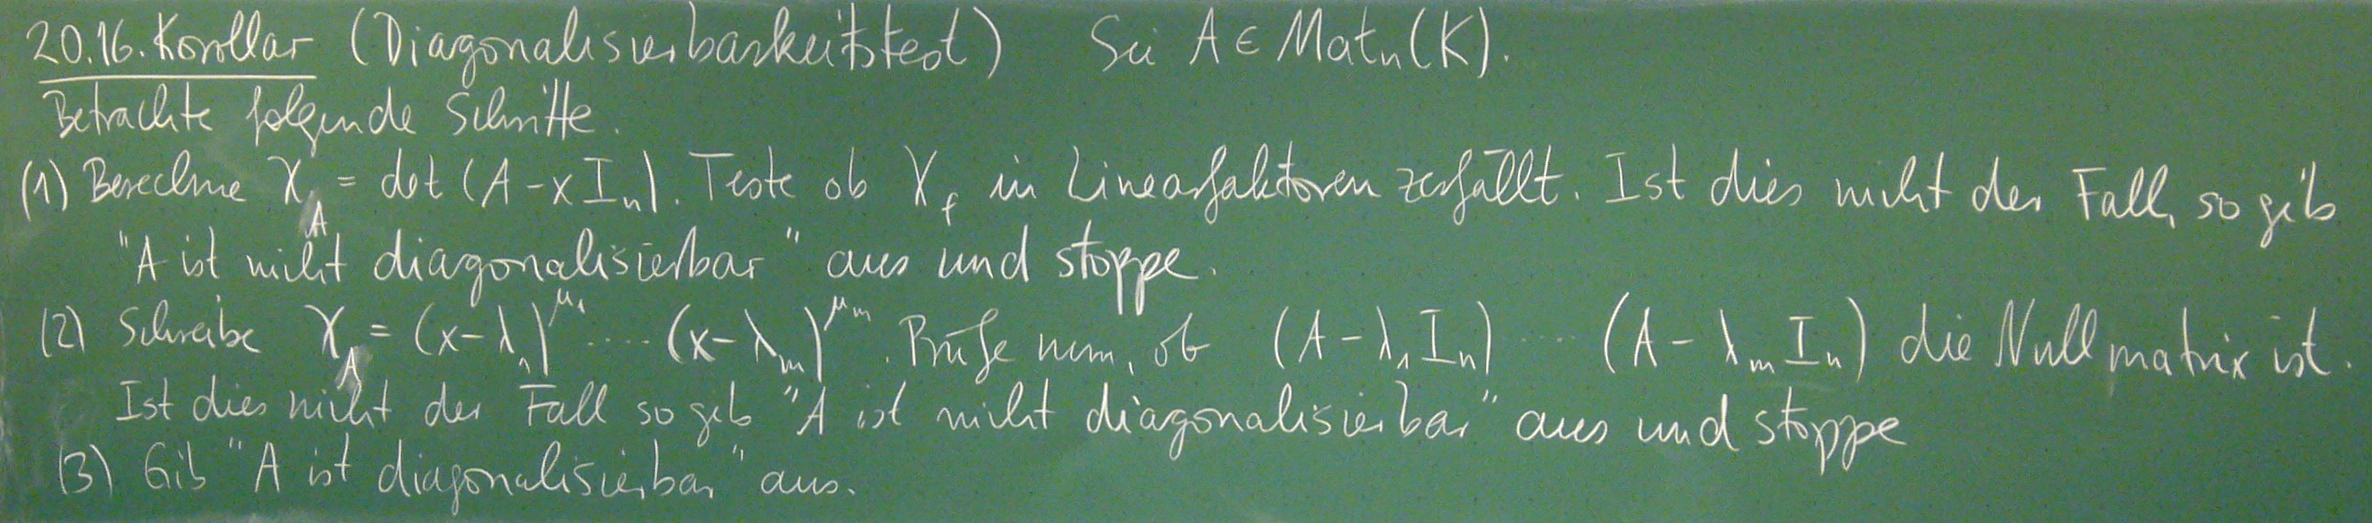 20.16. Korollar (Diagonalisierbarkeitstest) Sei A ∈ Matₙ(K).
Betrachte folgende Schritte.
(1) Berechne χ_A = det (A - x Iₙ). Teste ob χ_f in Linearfaktoren zerfällt. Ist dies nicht der Fall, so gib
"A ist nicht diagonalisierbar" aus und stoppe.
(2) Schreibe χ_A = (x-λ₁)^μ₁ ..... (x-λₘ)^μₘ. Prüfe nun, ob (A - λ₁Iₙ) ..... (A - λₘ Iₙ) die Nullmatrix ist.
Ist dies nicht der Fall so gib "A ist nicht diagonalisierbar" aus und stoppe
(3) Gib "A ist diagonalisierbar" aus.